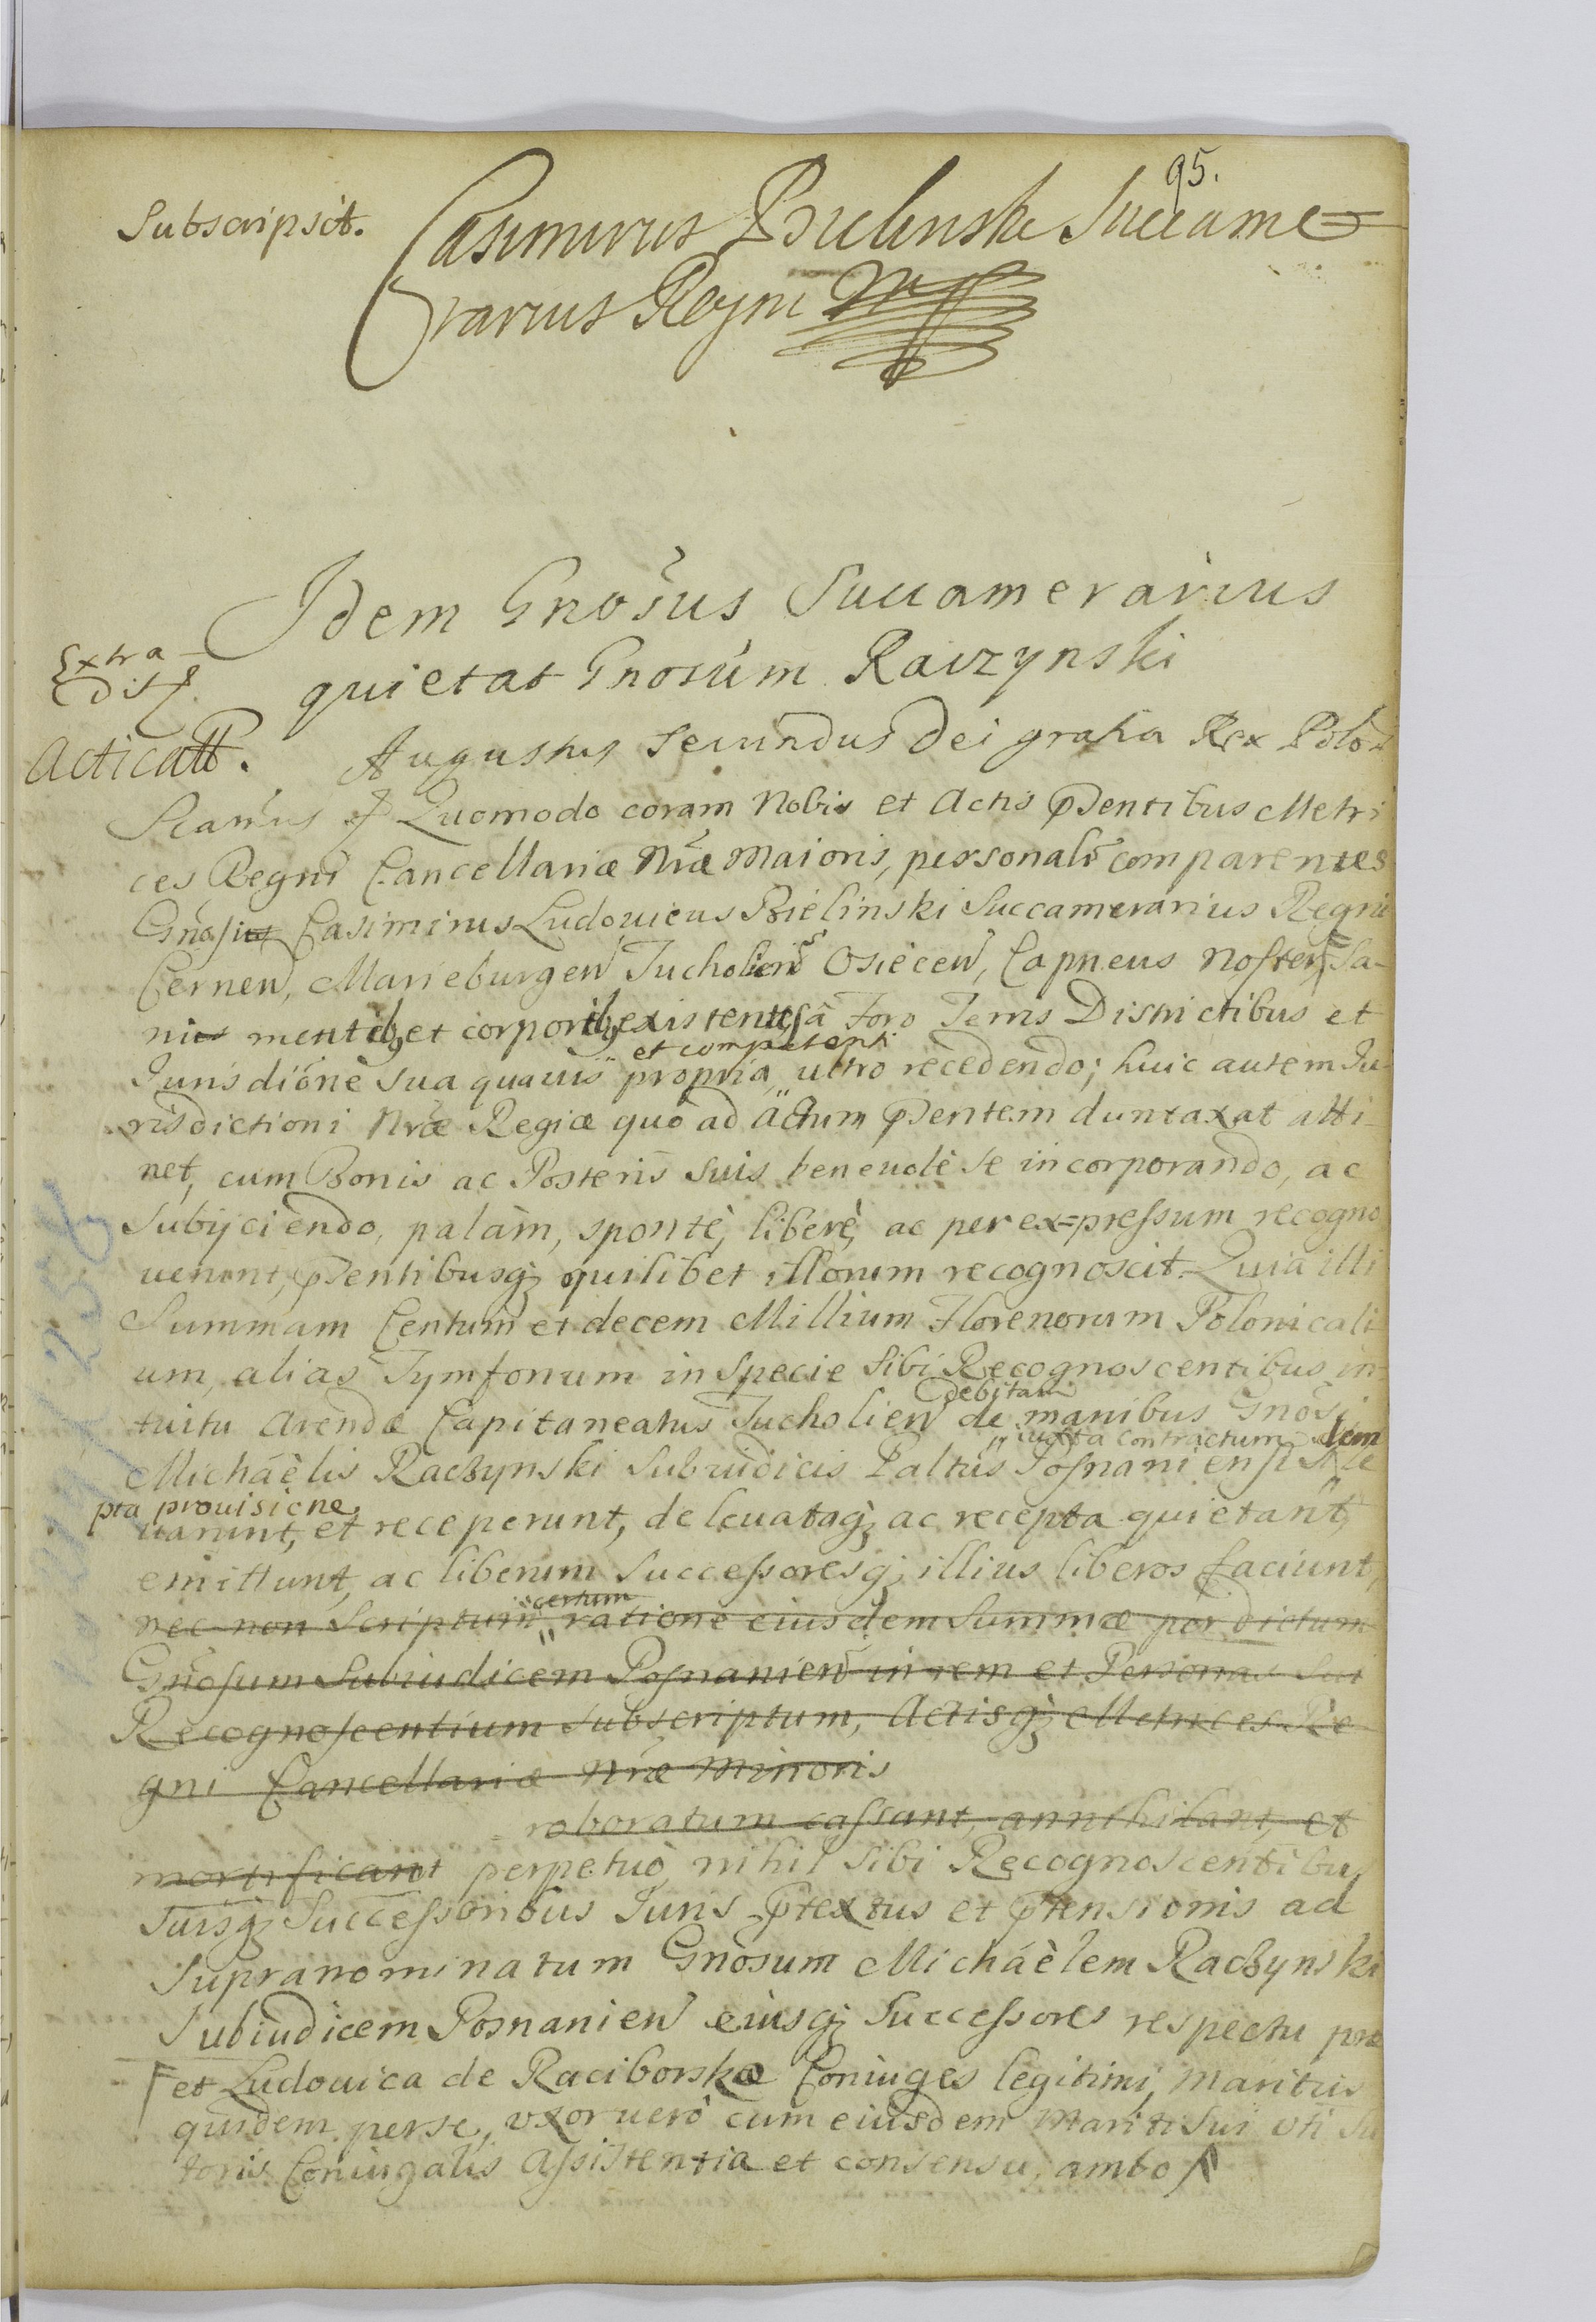 95.
Subscripsit. Casimirus Bielinski Succame=
rarius Regni mp
Idem Gnosus Succamerarius
quietat Gnosum Raczynski
Extra
dit
Acticatt.
Augustus Secundus Dei gratia Rex Polon
Quomodo coram Nobis et Actis pntibus Metri
ces Regni Cancellariæ Nræ Maioris, personalr comparentes
Gnosi Casimirus Ludovicus Bielinski Succamerarius Regni
Cernen, Marieburgen Tucholien Osiecen, Capneus Noster F Sa-
ni mentibq et corporibq existentes â Foro Terris Districtibus et
et competenti
Jurisdióne sua quavis propria ultro recedendo; huic autem Ju
risdictioni Nræ Regiæ quo ad Actum pntem duntaxat atti-
net, cum Bonis ac Posteris suis benevolè se incorporando, ac
Subijciendo, palàm, spontè, liberè, ac per ex=pressum recogno
verunt, pntibusq quilibet illorum recognoscit. Quia illi
Summam Centum et decem Millium Florenorum Polonicali
um, alias Tymfonum in Specie Sibi Recognoscentibus in-
debitam
tuitu Arendæ Capitaneatus Tucholien de manibus Gnosi
iuxta contractum
Michäèlis Raczynski Subiudicis Paltus Posnaniensis le
pta provisione
varunt, et receperunt, de levataq ac recepta quietant,
emittunt, ac liberum Successoresq illius liberos faciunt,
certum
nec non Scriptum ratione eiusdem Summæ per dictum
Gnosum Subiudicem Posnanien in rem et Personas Sui
Recognoscentium subscriptum, Actisq Metrices Re
gni Cancellariæ Nræ Minoris
roboratum cassant, annihilant, et
mortificant perpetuo, nihil sibi Recognoscentibus
Suisq Successoribus Juris ptextus et ptensionis ad
Supranominatum Gnosum Michäèlem Raczynski
Subiudicem Posnanien eiusq Successores respectu præ
F et Ludovica de Raciborskæ Coniuges legitimi, Maritus
quidem per se, vxor verò cum eiusdem Mariti sui vti Tu
toris Coniugalis assistentia et consensu, ambo